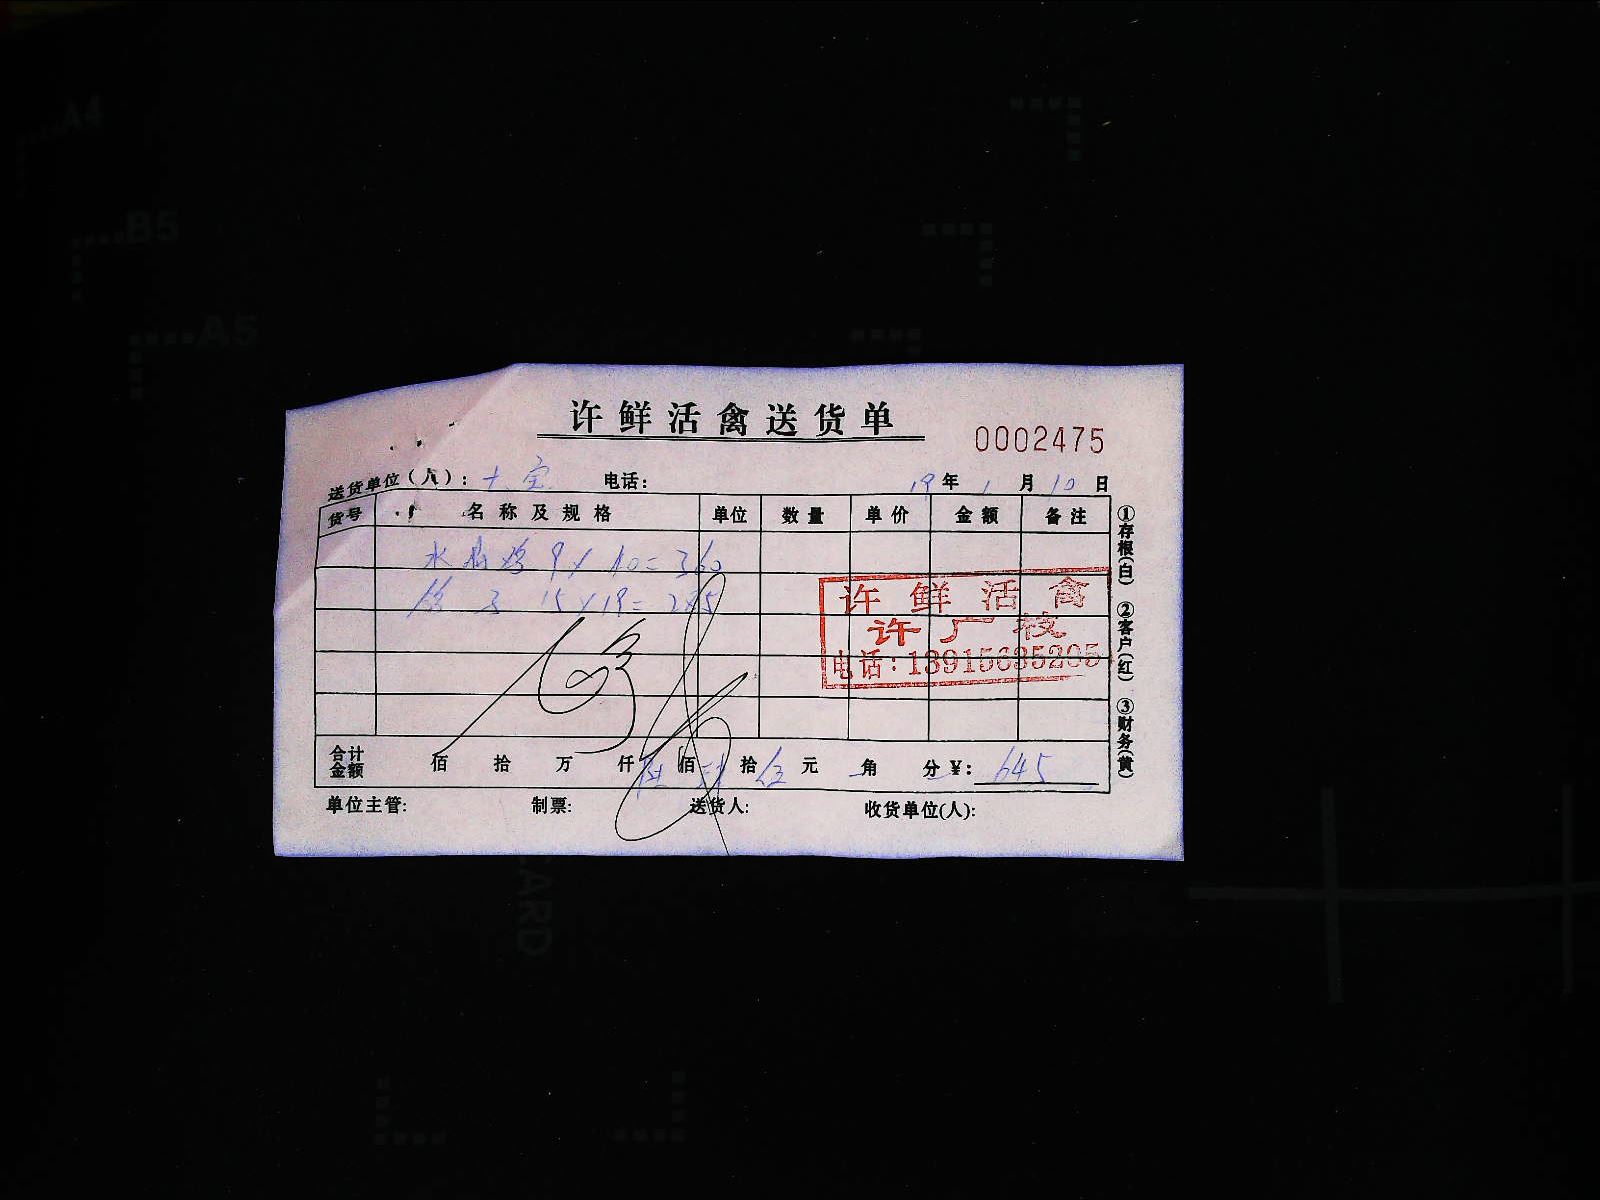 A4
B5
A5
许鲜活禽送货单
0002475
送货单位(人): 大宝 电话: 19年1月10日
货号 名称及规格 单位 数量 单价 金额 备注
水 鸡 9×40=360
鸽子 15×19=285
许鲜活禽
许广枝
电话:13915635205
合计金额 佰 拾 万 仟 陆佰 肆拾 伍元 角 分 ¥: 645
单位主管: 制票: 送货人: 收货单位(人):
①存根(白) ②客户(红) ③财务(黄)
CARD